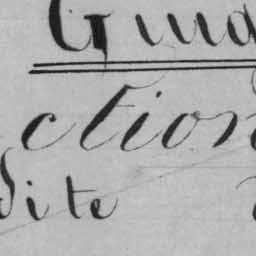 Giud
ction
dite